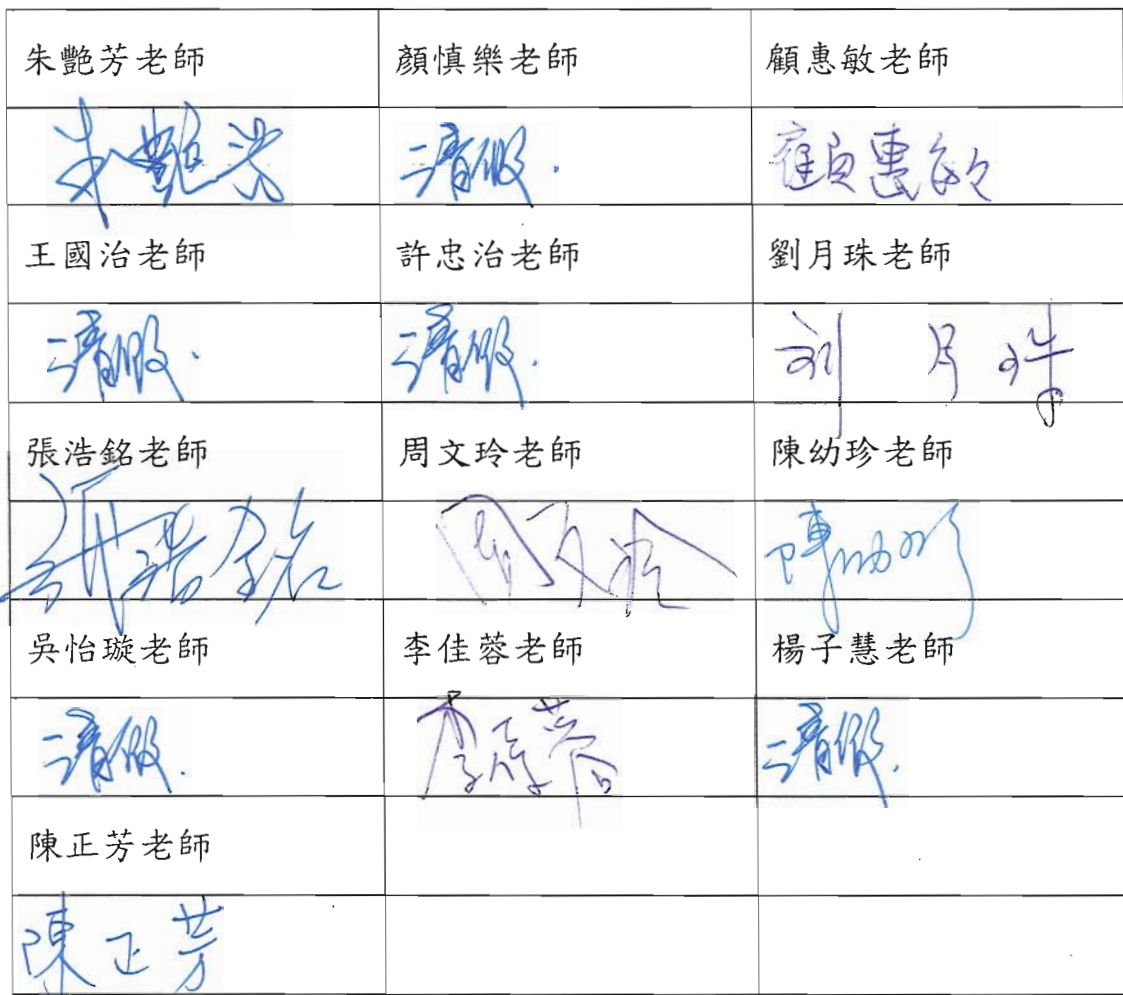 朱艷芳老師 顏慎樂老師 顧惠敏老師
朱艷芳 請假. 顧惠敏
王國治老師 許忠治老師 劉月珠老師
請假. 請假. 刘月珠
張浩銘老師 周文玲老師 陳幼珍老師
張浩銘 周文玲 陳幼珍
吳怡璇老師 李佳蓉老師 楊子慧老師
請假. 李佳蓉 請假.
陳正芳老師
陳正芳